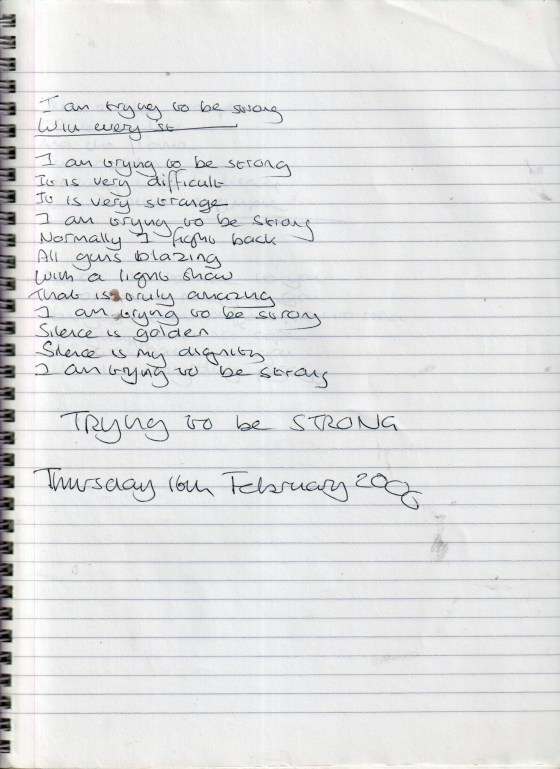 I am trying to be strong
With every st
I am trying to be strong
It is very difficult
It is very strange
I am trying to be strong
Normally I fight back
All guns blazing
With a light show
That is truly amazing
I am trying to be strong
Silence is golden
Silence is my dignity
I am trying to be strong
TRYING to be STRONG
Thursday 16th February 2006